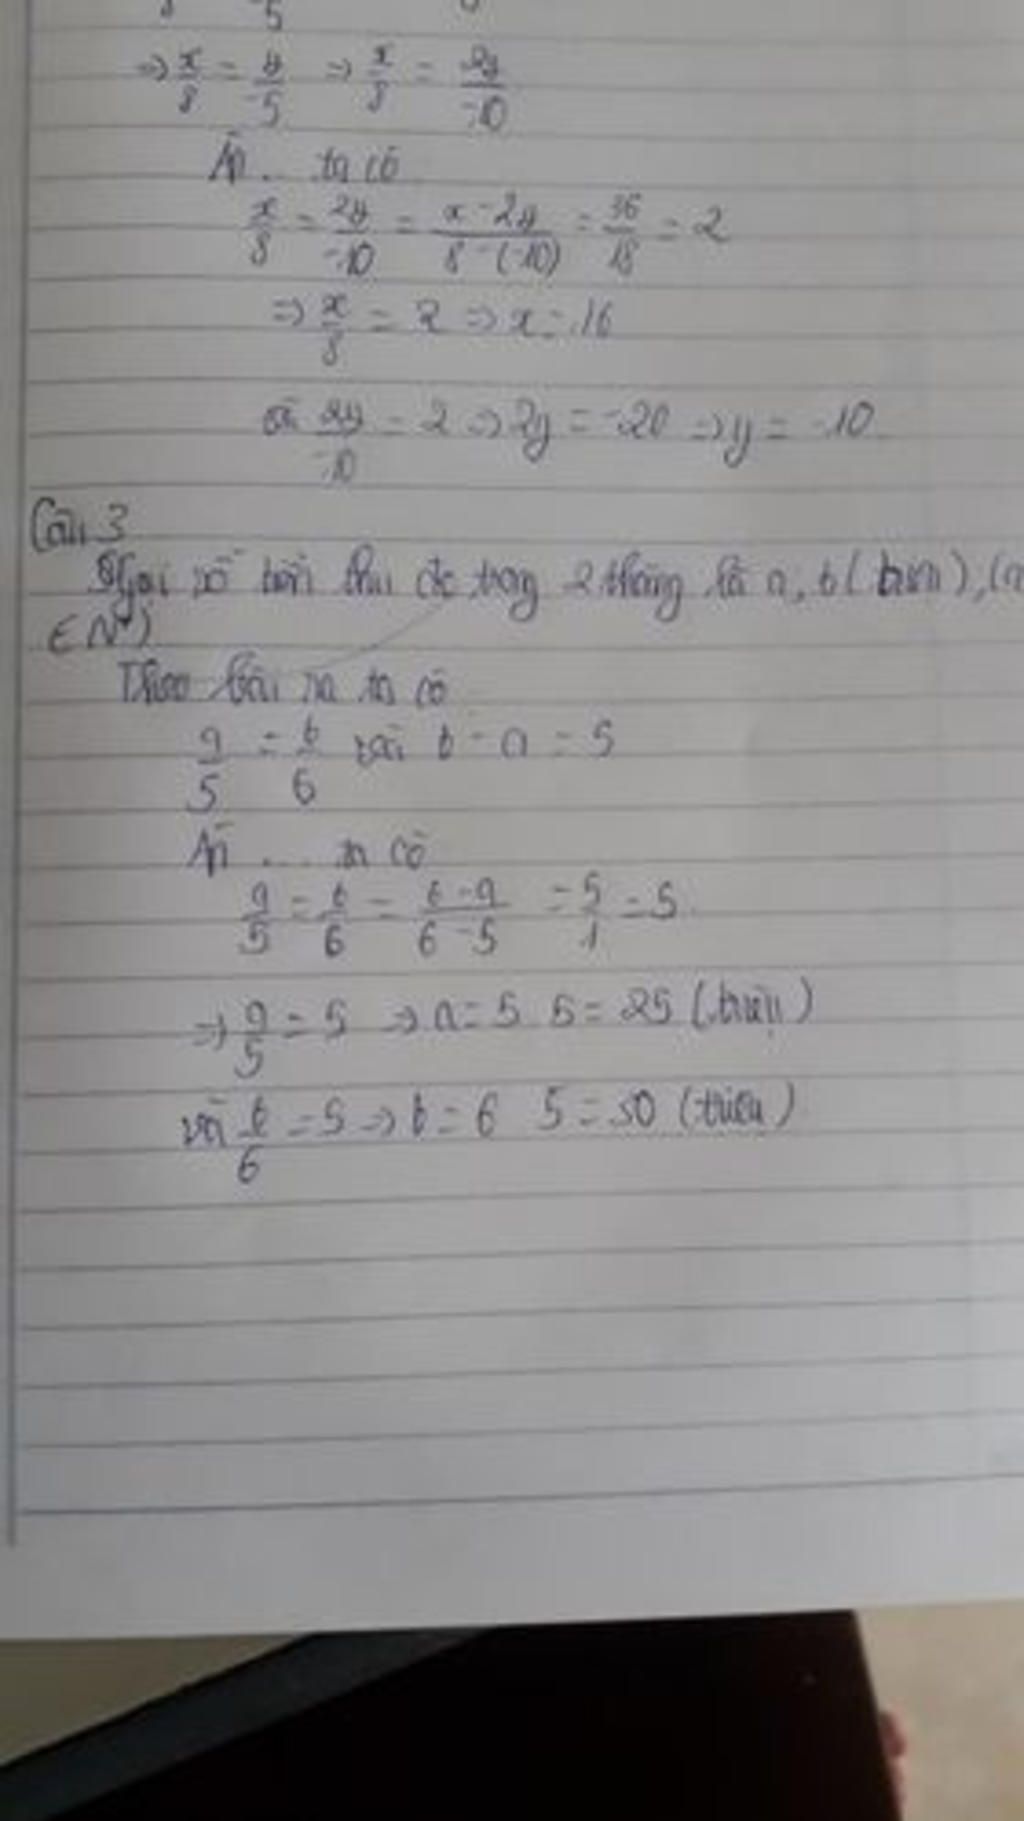 ⇒ x/8 = y/-5 ⇒ x/8 = 2y/-10
ta có
x/8 = 2y/-10 = x-2y/8-(-10) = 36/18 = 2
⇒ x/8 = 2 ⇒ x = 16
và 2y/-10 = 2 ⇒ 2y = -20 ⇒ y = -10
Câu 3
Gọi số tiền thu đc trong 2 tháng là a, b (triệu), (a
∈ N*)
Theo bài ra ta có
a/5 = b/6 và b - a = 5
ta có
a/5 = b/6 = b-a/6-5 = 5/1 = 5
⇒ a/5 = 5 ⇒ a = 5 5 = 25 (triệu)
và b/6 = 5 ⇒ b = 6 5 = 30 (triệu)